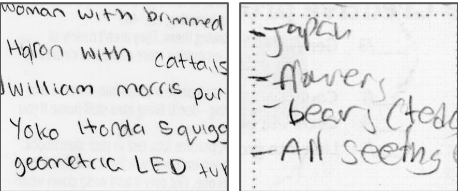 woman with brimmed
Haron with cattails
William morris pur
Yoko Honda Squigg
geometric LED tur
- Japan
- flowers
- bears (tedd
- All seeing